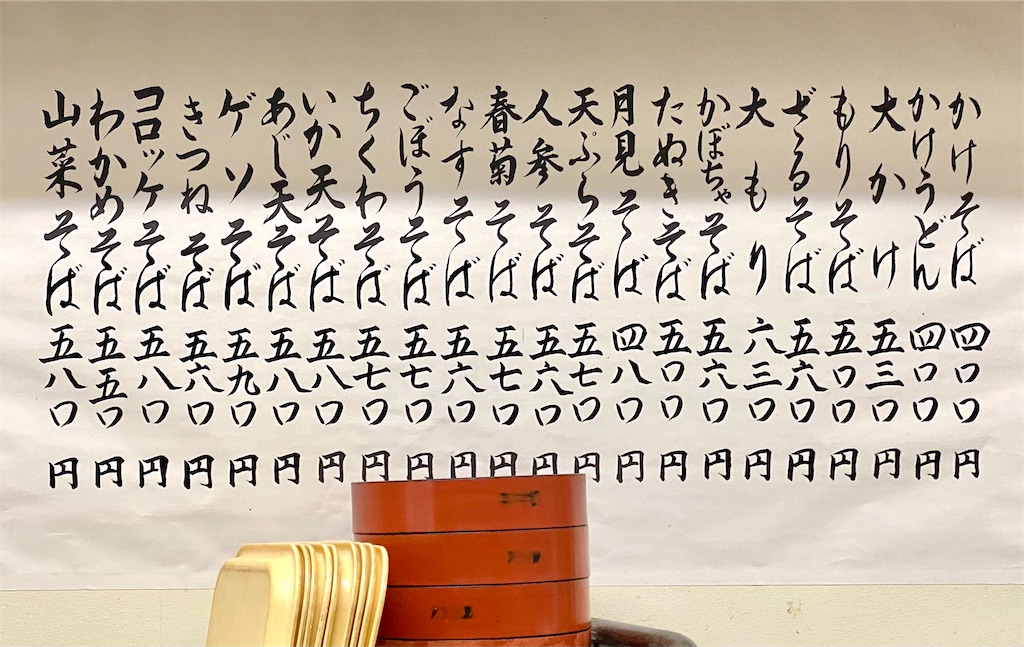 かけそば 四〇〇円
かけうどん 四〇〇円
大かけ 五三〇円
もりそば 五〇〇円
ざるそば 五六〇円
大もり 六三〇円
かぼちゃそば 五六〇円
たぬきそば 五〇〇円
月見そば 四八〇円
天ぷらそば 五七〇円
人参そば 五六〇円
春菊そば 五七〇円
なすそば 五六〇円
ごぼうそば 五七〇円
ちくわそば 五七〇円
いか天そば 五八〇円
あじ天そば 五八〇円
ゲソそば 五九〇円
きつねそば 五六〇円
コロッケそば 五八〇円
わかめそば 五五〇円
山菜そば 五八〇円